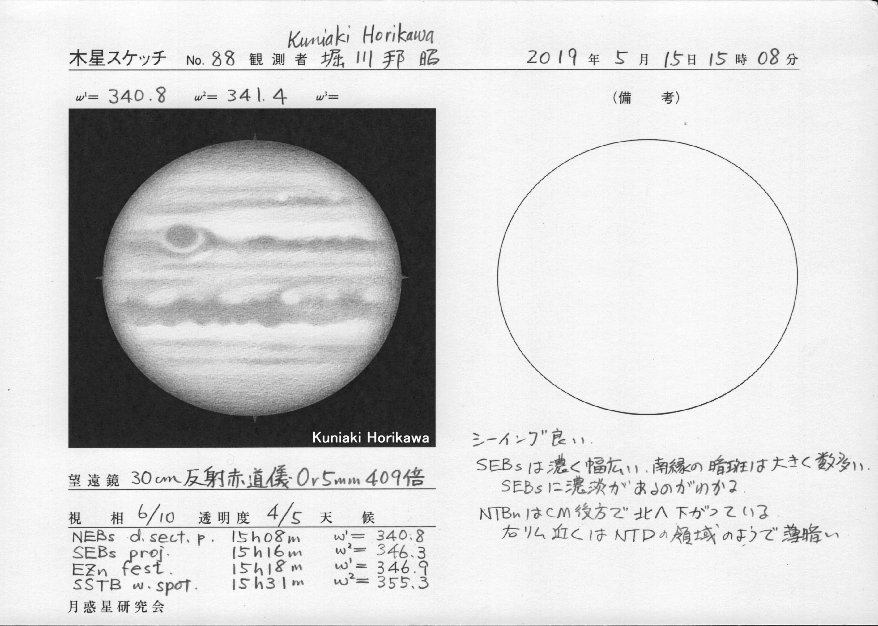 Kuniaki Horikawa
木星スケッチ No. 88 観測者 堀川邦昭 2019年5月15日15時08分
ω¹= 340.8 ω²= 341.4 ω³=
(備 考)
Kuniaki Horikawa
望遠鏡 30cm反射赤道儀 Or5mm 409倍
視相 6/10 透明度 4/5 天候
NEBs d.sect.p. 15h08m ω¹= 340.8
SEBs proj. 15h16m ω²= 346.3
EZn fest. 15h18m ω¹= 346.9
SSTB w.spot. 15h31m ω²= 355.3
月惑星研究会
シーイング良い.
SEBsは濃く幅広い. 南縁の暗斑は大きく数多い.
SEBsに濃淡があるのがわかる.
NTBnはCM後方で北へ下がっている.
右リム近くはNTDの領域のようで薄暗い